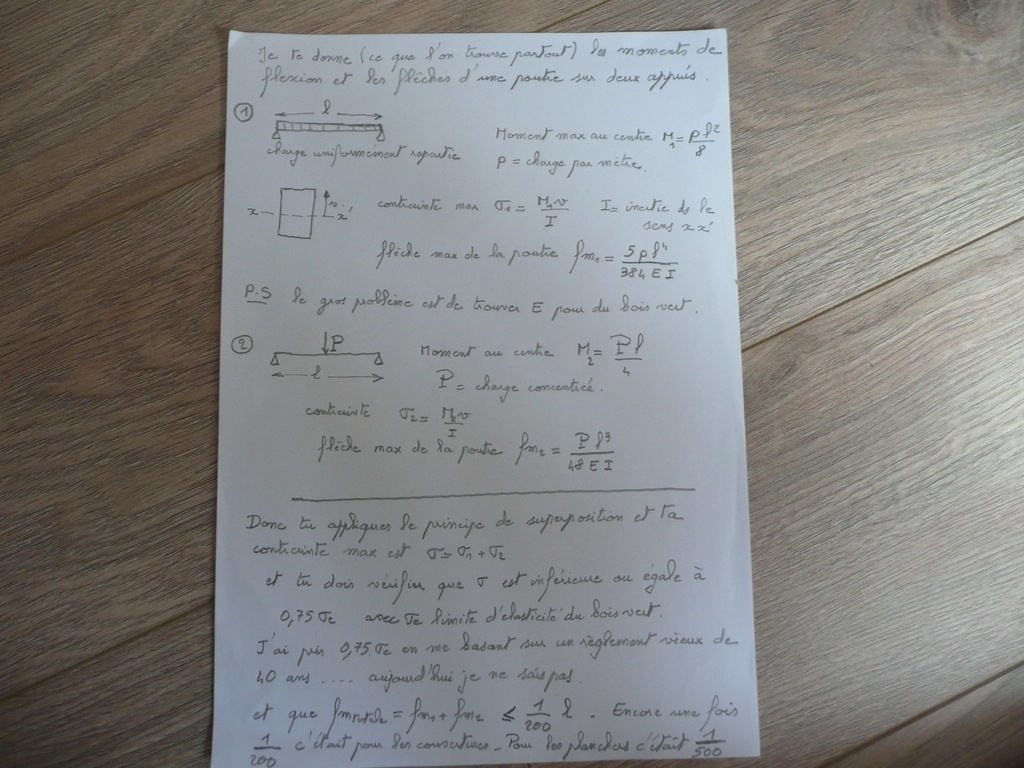 Je te donne (ce que l'on trouve partout) les moments de
flexion et les flèches d'une poutre sur deux appuis.
① l
Moment max au centre M₁ = pl²/8
charge uniformément repartie
p = charge par mètre.
v
x x'
contrainte max σ₁ = M₁v/I I = inertie ds le
sens xx'
flèche max de la poutre fm₁ = 5pl⁴/384EI
P.S le gros problème est de trouver E pour du bois vert.
② P
Moment au centre M₂ = Pl/4
l
P = charge concentrée.
contrainte σ₂ = M₂v/I
flèche max de la poutre fm₂ = Pl³/48EI
Donc tu appliques le principe de superposition et ta
contrainte max est σ = σ₁ + σ₂
et tu dois vérifier que σ est inférieure ou égale à
0,75 σe avec σe limite d'élasticité du bois vert.
J'ai pris 0,75 σe en me basant sur un règlement vieux de
40 ans .... aujourd'hui je ne sais pas.
et que fm totale = fm₁ + fm₂ ≤ 1/200 l . Encore une fois
1/200 c'était pour les couvertures - Pour les planchers c'était 1/500